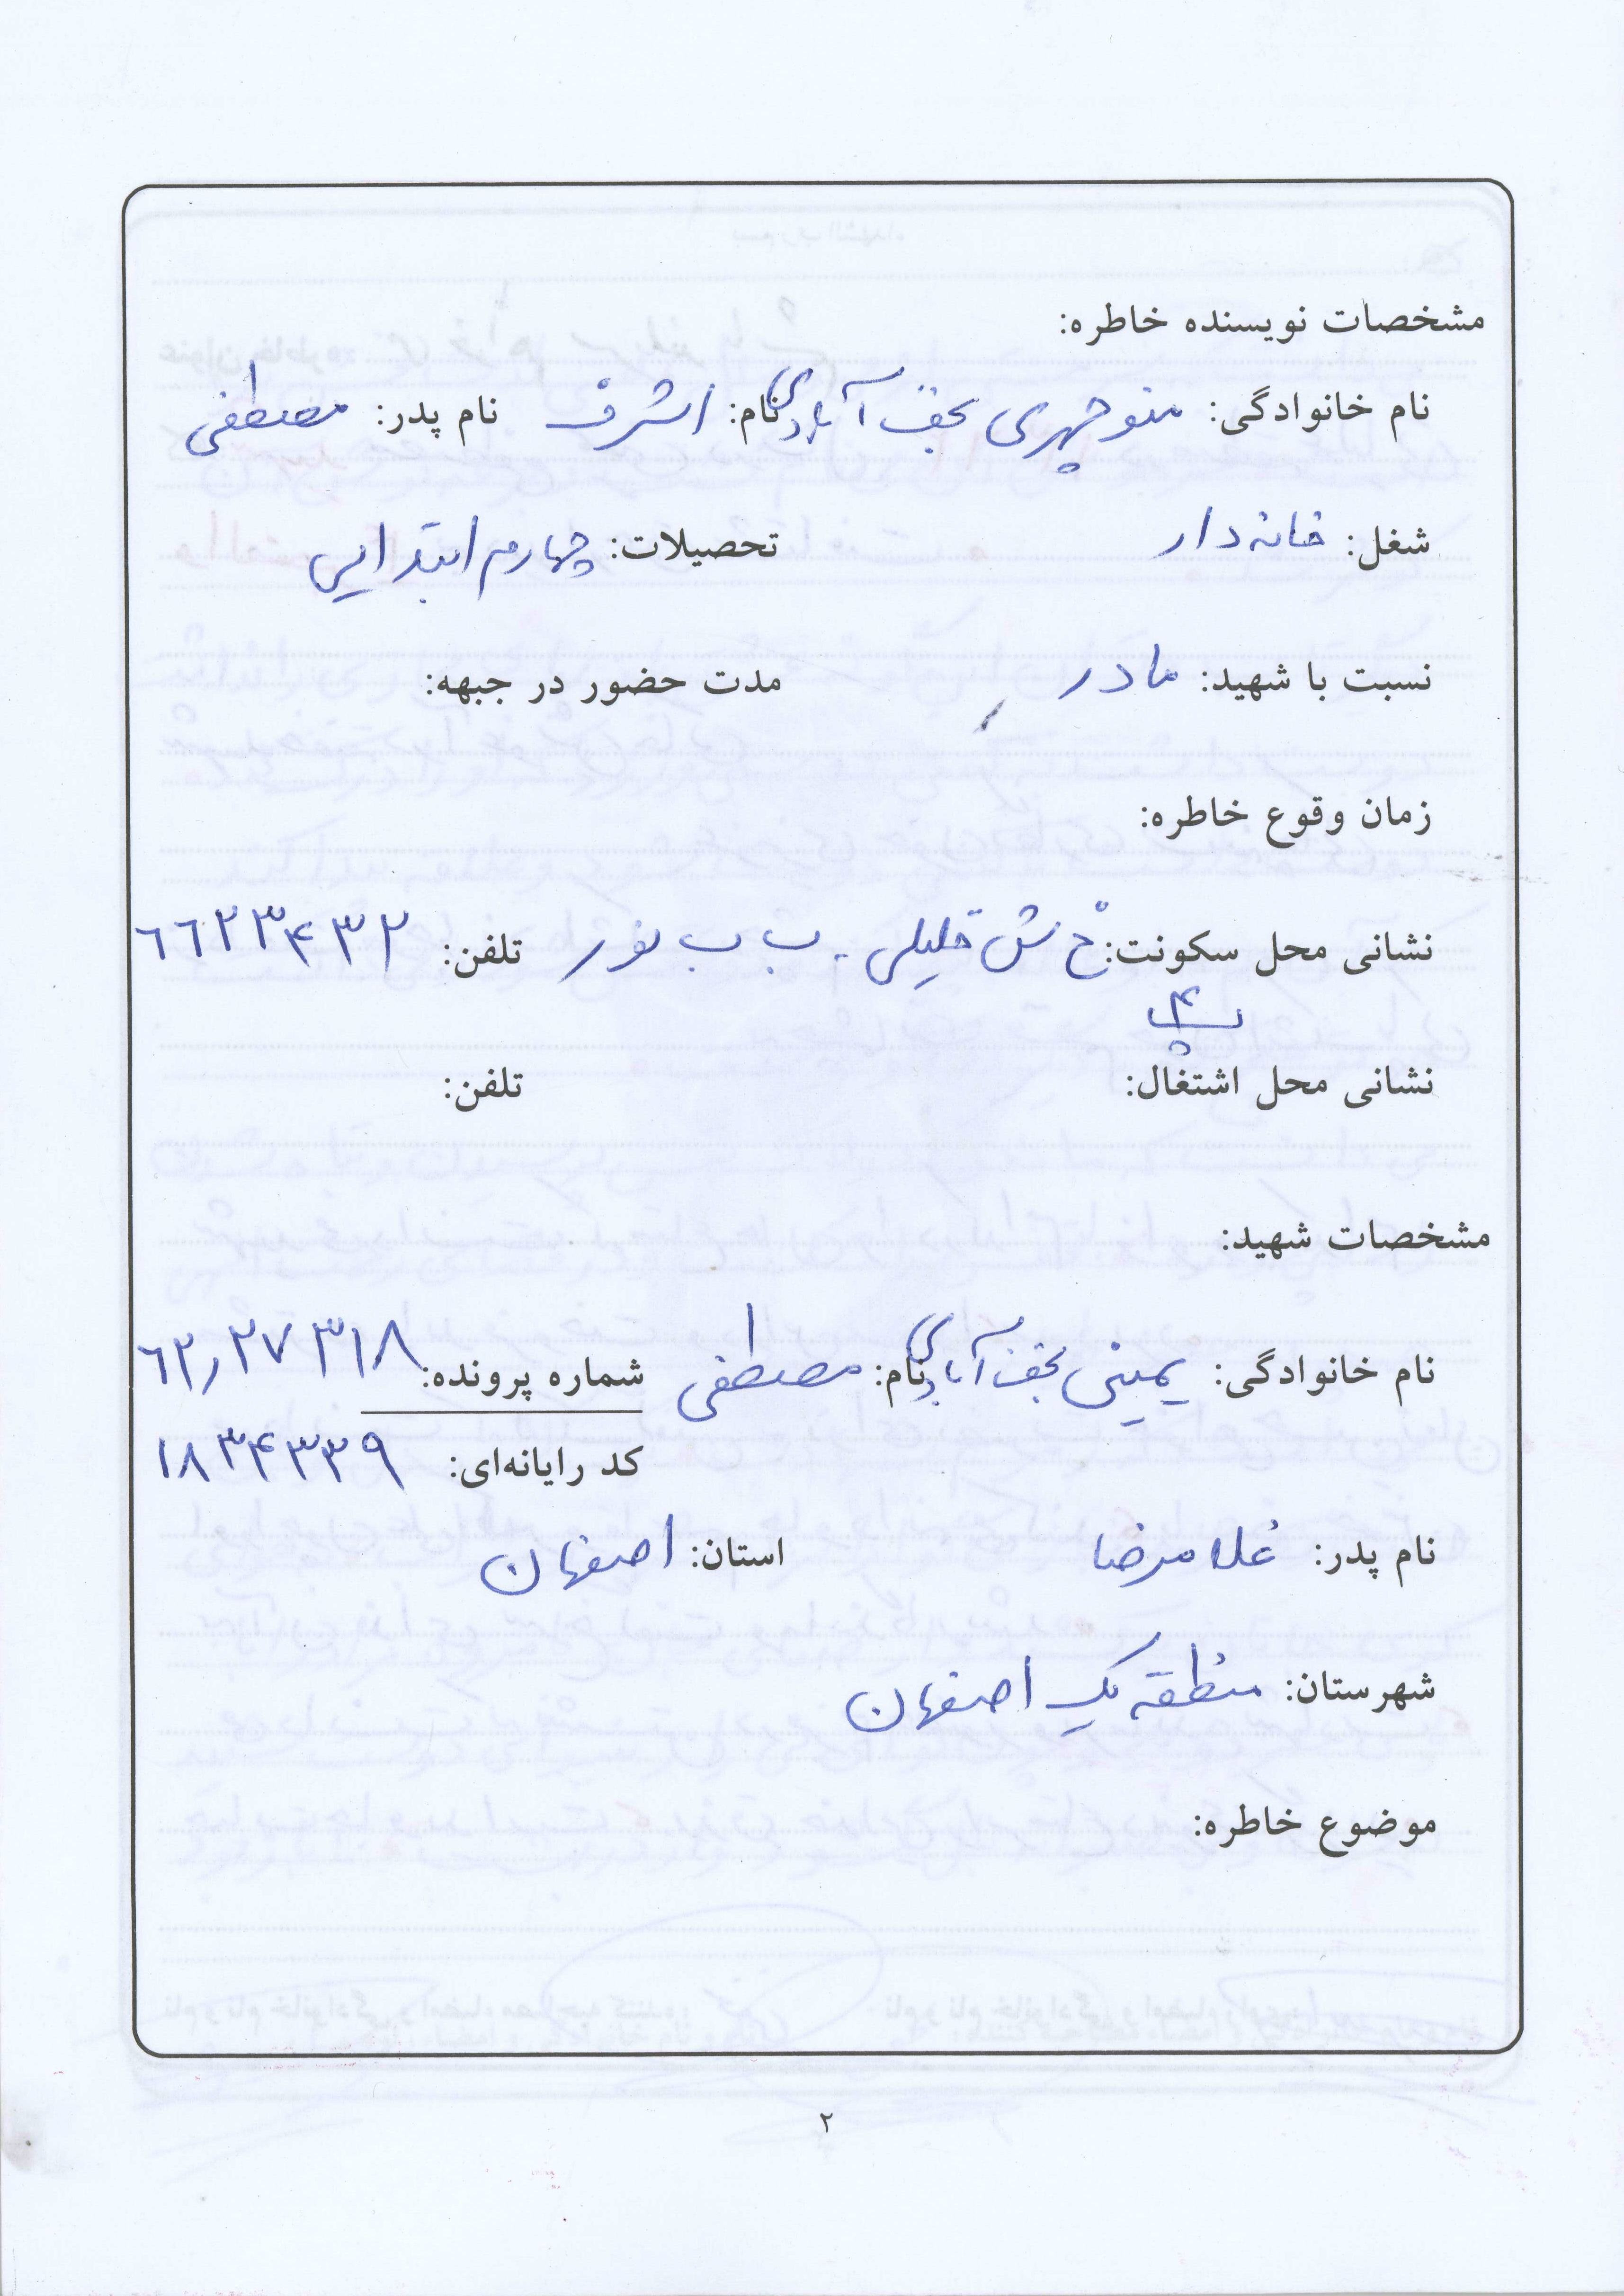 مشخصات نویسنده خاطره:
نام خانوادگی: منوچهری نجف آبادی نام: اشرف نام پدر: مصطفی
شغل: خانه دار تحصیلات: چهارم ابتدایی
نسبت با شهید: مادر مدت حضور در جبهه:
زمان وقوع خاطره:
نشانی محل سکونت: خ ش خلیلی. ب ب نور تلفن: ۶۶۲۳۴۳۲
پ ۴
نشانی محل اشتغال: تلفن:
مشخصات شهید:
نام خانوادگی: یمینی نجف آبادی نام: مصطفی شماره پرونده: ۶۲٫۲۷۳۱۸
کد رایانه‌ای: ۱۸۳۴۳۳۹
نام پدر: غلامرضا استان: اصفهان
شهرستان: منطقه یک اصفهان
موضوع خاطره:
۲